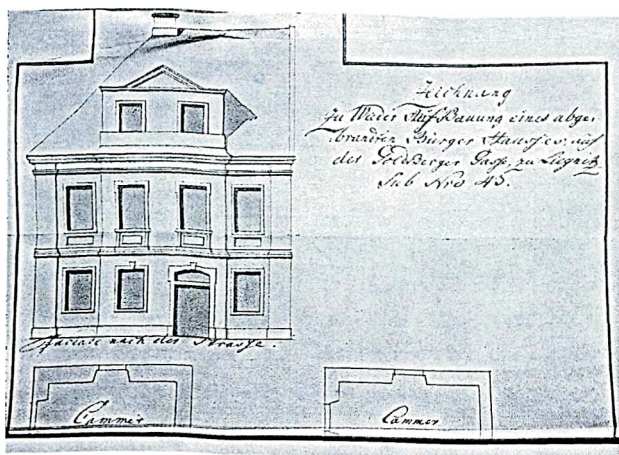 Zeichnung
zu Wieder Aufbauung eines abge-
brandten Bürger Hausses, auf
der Goldberger Gasse, zu Liegnitz
Sub Nro 45.
Faciade nach der Strasse.
Cammer
Cammer